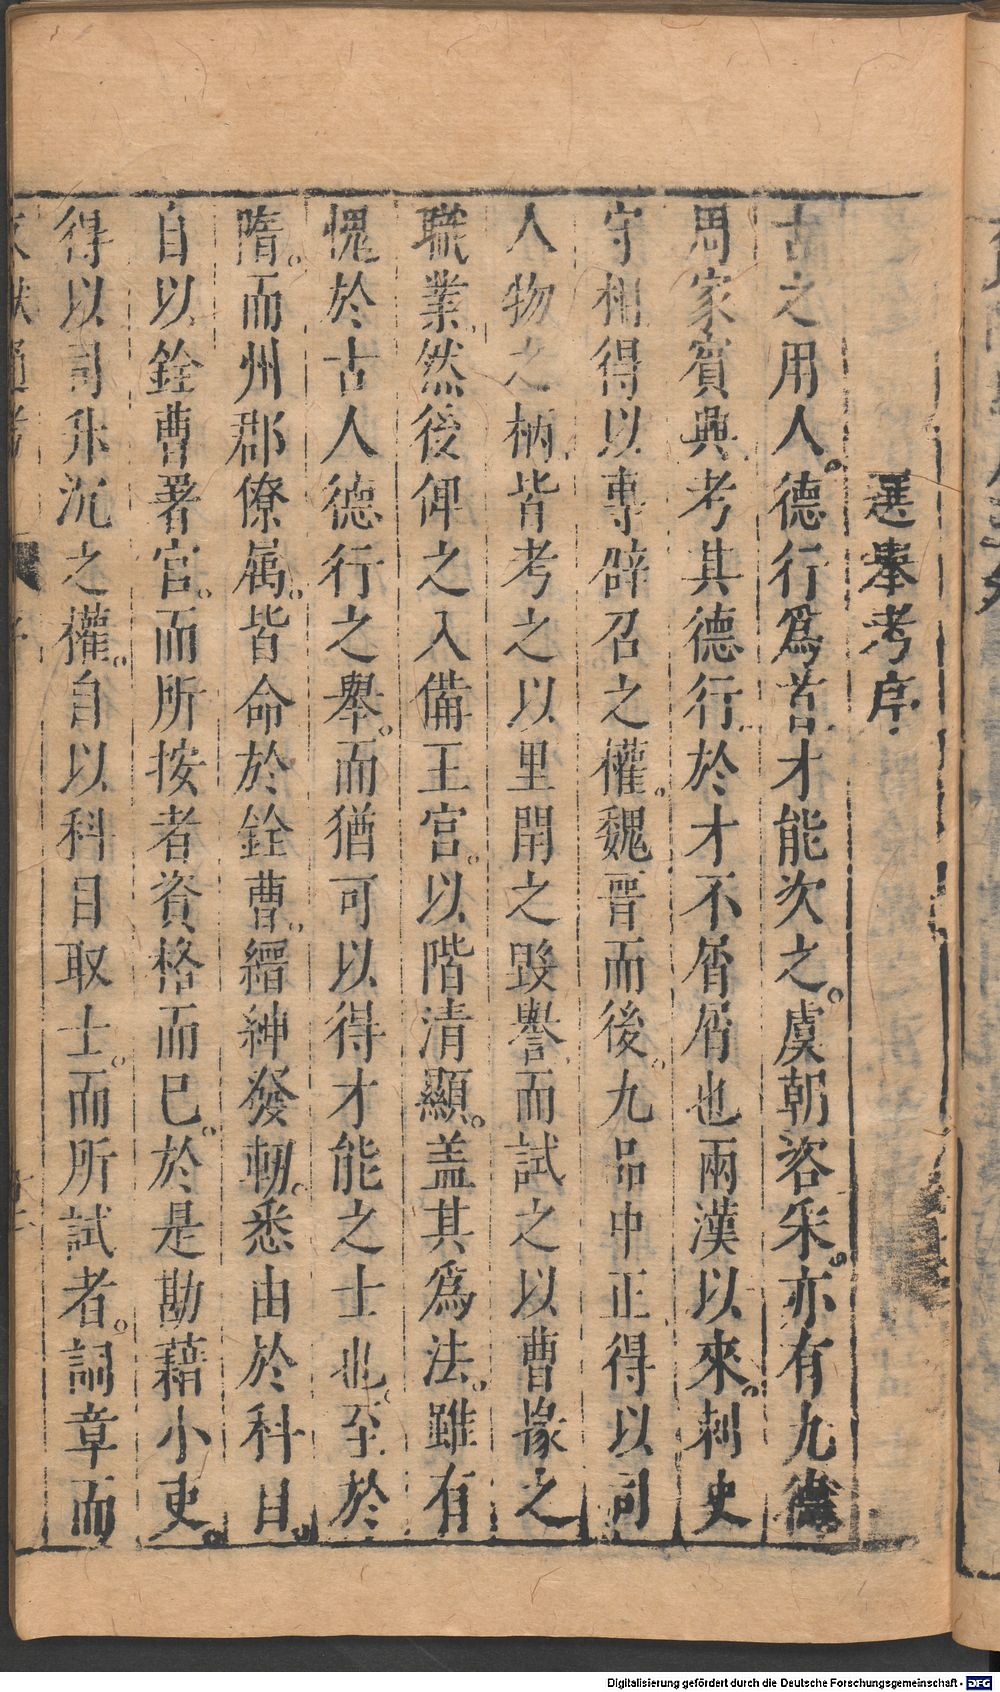 選舉考序
古之用人。德行爲首才能次之。虞朝咨采。亦有九德
周家賓興。考其德行。於才不屑屑也兩漢以來。刺史
守相得以專辟召之權。魏晋而後。九品中正得以司
人物之柄。皆考之以里閈之毀譽。而試之以曹掾之
職業。然後俾之入備王官。以階清顯。盖其爲法。雖有
愧於古人德行之舉。而猶可以得才能之士也。至於
隋。而州郡僚属。皆命於銓曹。縉紳發軔。悉由於科目。
自以銓曹署官。而所按者資格而已。於是勘籍小吏。
得以司升沉之權。自以科目取士。而所試者。詞章而
文獻通考
Digitalisierung gefördert durch die Deutsche Forschungsgemeinschaft - DFG